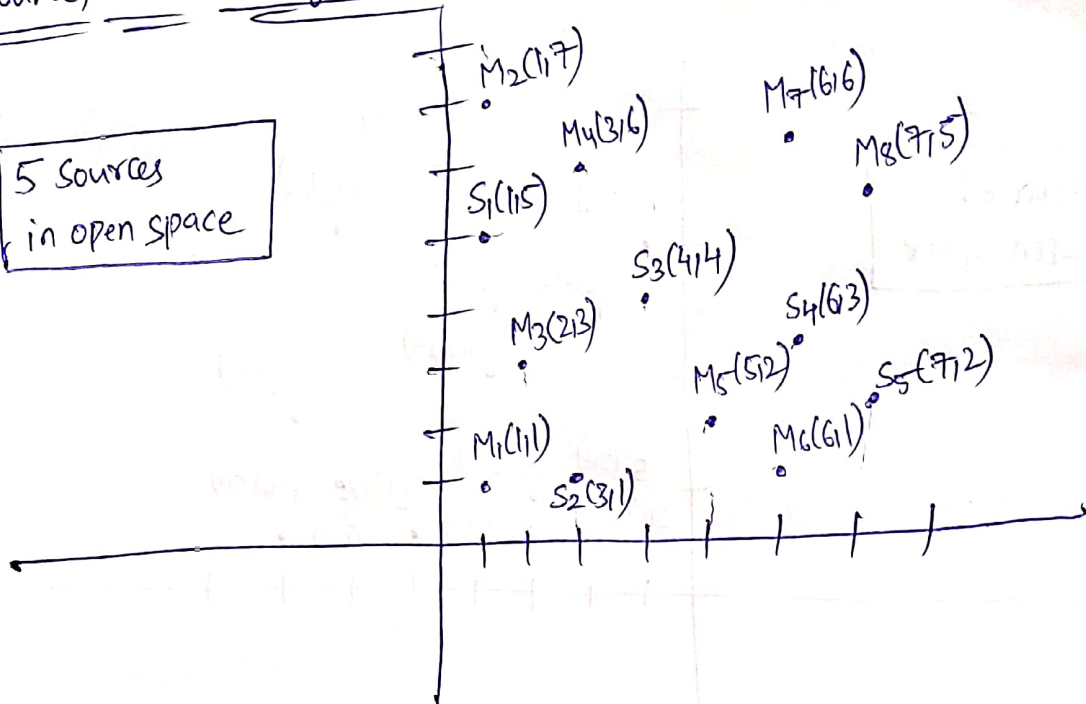 5 Sources
in open space
M2(1,7)
M7(6,6)
M4(3,6)
M8(7,5)
S1(1,5)
S3(4,4)
S4(6,3)
M3(2,3)
M5(5,2)
S5(7,2)
M1(1,1)
M6(6,1)
S2(3,1)